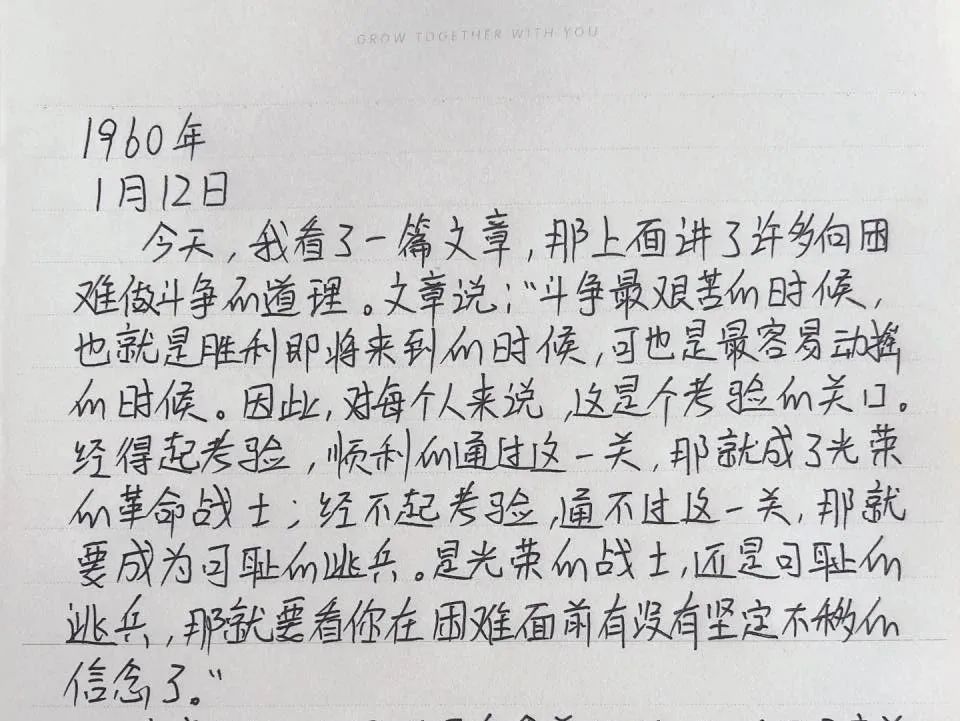 GROW TOGETHER WITH YOU
1960年
1月12日
今天,我看了一篇文章,那上面讲了许多向困
难做斗争的道理。文章说:"斗争最艰苦的时候,
也就是胜利即将来到的时候,可也是最容易动摇
的时候。因此,对每个人来说,这是个考验的关口。
经得起考验,顺利的通过这一关,那就成了光荣
的革命战士;经不起考验,通不过这一关,那就
要成为可耻的逃兵。是光荣的战士,还是可耻的
逃兵,那就要看你在困难面前有没有坚定不移的
信念了。"